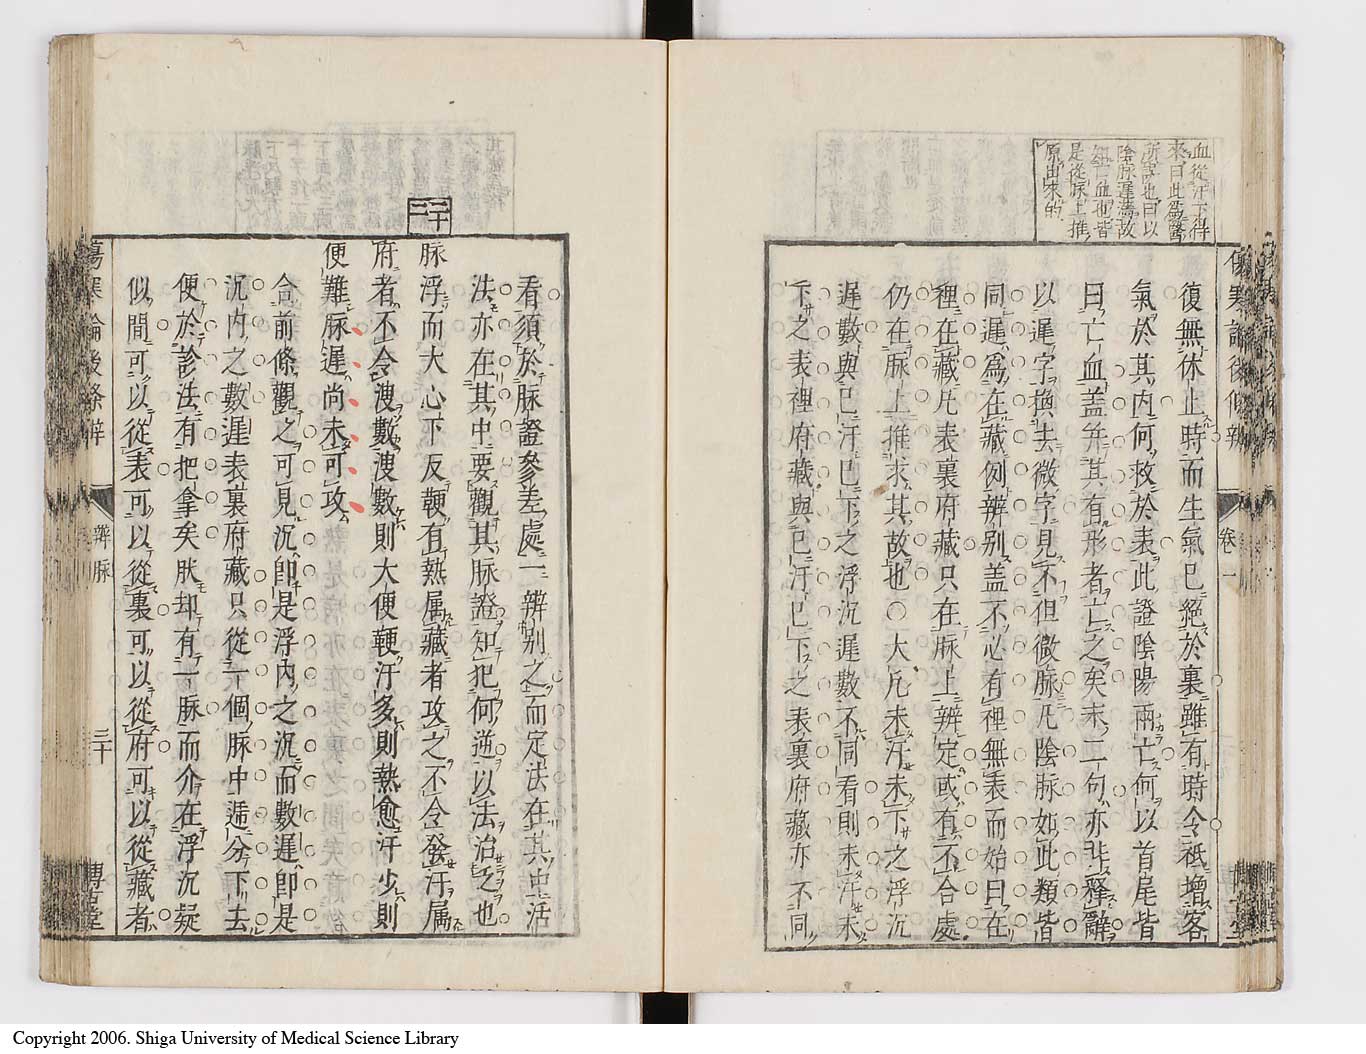 血從汗下得
來曰此爲醫
所害也曰以
陰脉遲濇故
知亡血也皆
是從脉上推
原由來的
復無休止時而生氣已絕於裏雖有時令祇增客
氣於其內何救於表此證陰陽兩亡何以首尾皆
曰亡血蓋幷其有形者亡之矣末二句亦非釋辭
以遲字換去微字見不但微脉凡陰脉如此類皆
同遲爲在藏例辨别蓋不必有裡無表而始曰在
裡在藏凡表裏府藏只在脉上辨定或有不合處
仍在脉上推求其故也〇大凡未汗未下之浮沉
遲數與已汗已下之浮沉遲數不同看則未汗未
下之表裡府藏與已汗已下之表裏府藏亦不同
卷一
二十二
看須於脉證參差處一一辨别之而定法在其中活
法亦在其中要觀其脉證知犯何逆以法治之也
脉浮而大心下反鞕有熱属藏者攻之不令發汗属
府者不令溲數溲數則大便鞕汗多則熱愈汗少則
便難脉遲尚未可攻
合前條觀之可見沉卽是浮內之沉而數遲卽是
沉內之數遲表裏府藏只從一個脉中遞分下去
便於診法有把拿矣肰却有一脉而介在浮沉疑
似間可以從表可以從裏可以從府可以從藏者
傷寒論後條辨
辨脉
三十
博古堂
Copyright 2006. Shiga University of Medical Science Library